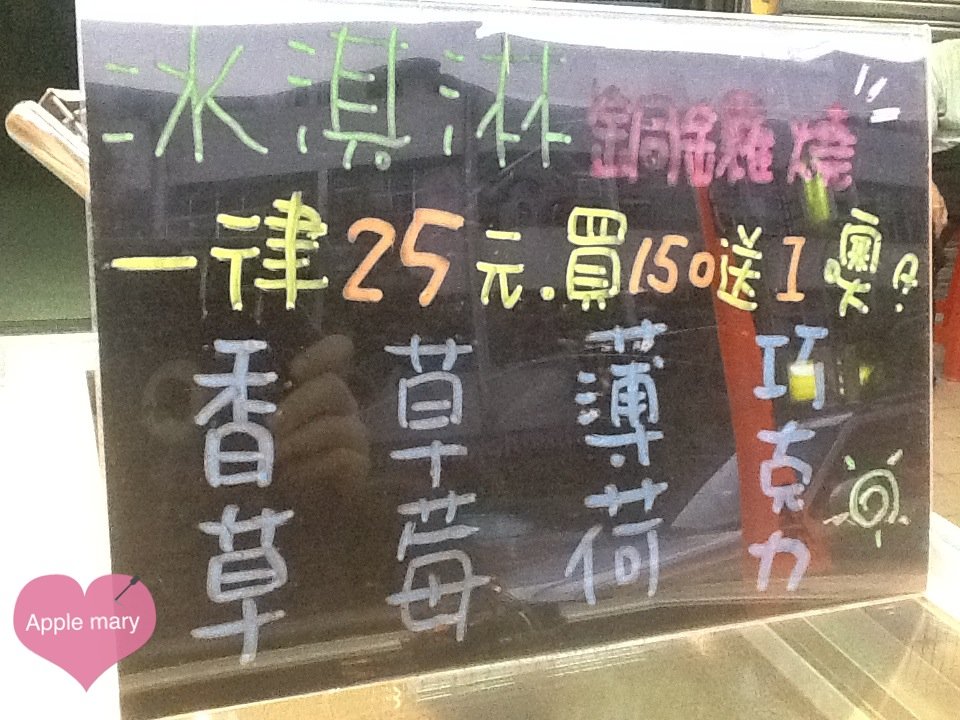 冰淇淋 銅鑼燒
一律25元.買150送1噢!
香草
草莓
薄荷
巧克力
Apple mary